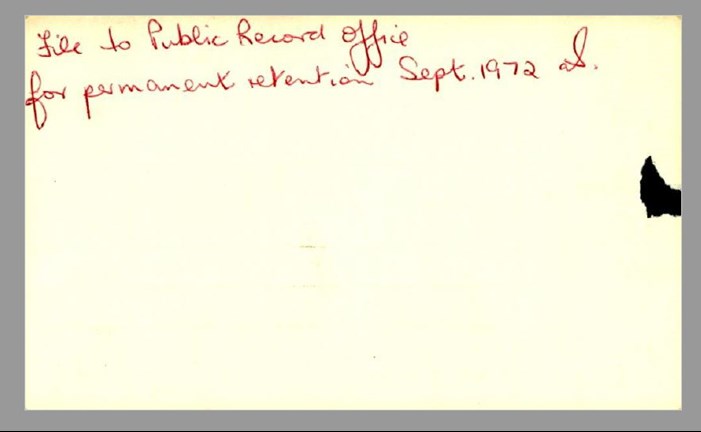 File to Public Record Office
for permanent retention Sept. 1972